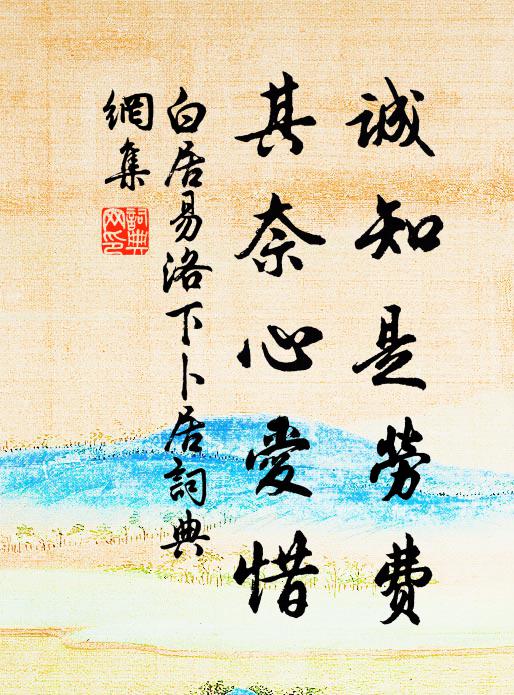 誠知是勞費
其奈心愛惜
白居易洛下卜居詞典
網集
詞典
网印